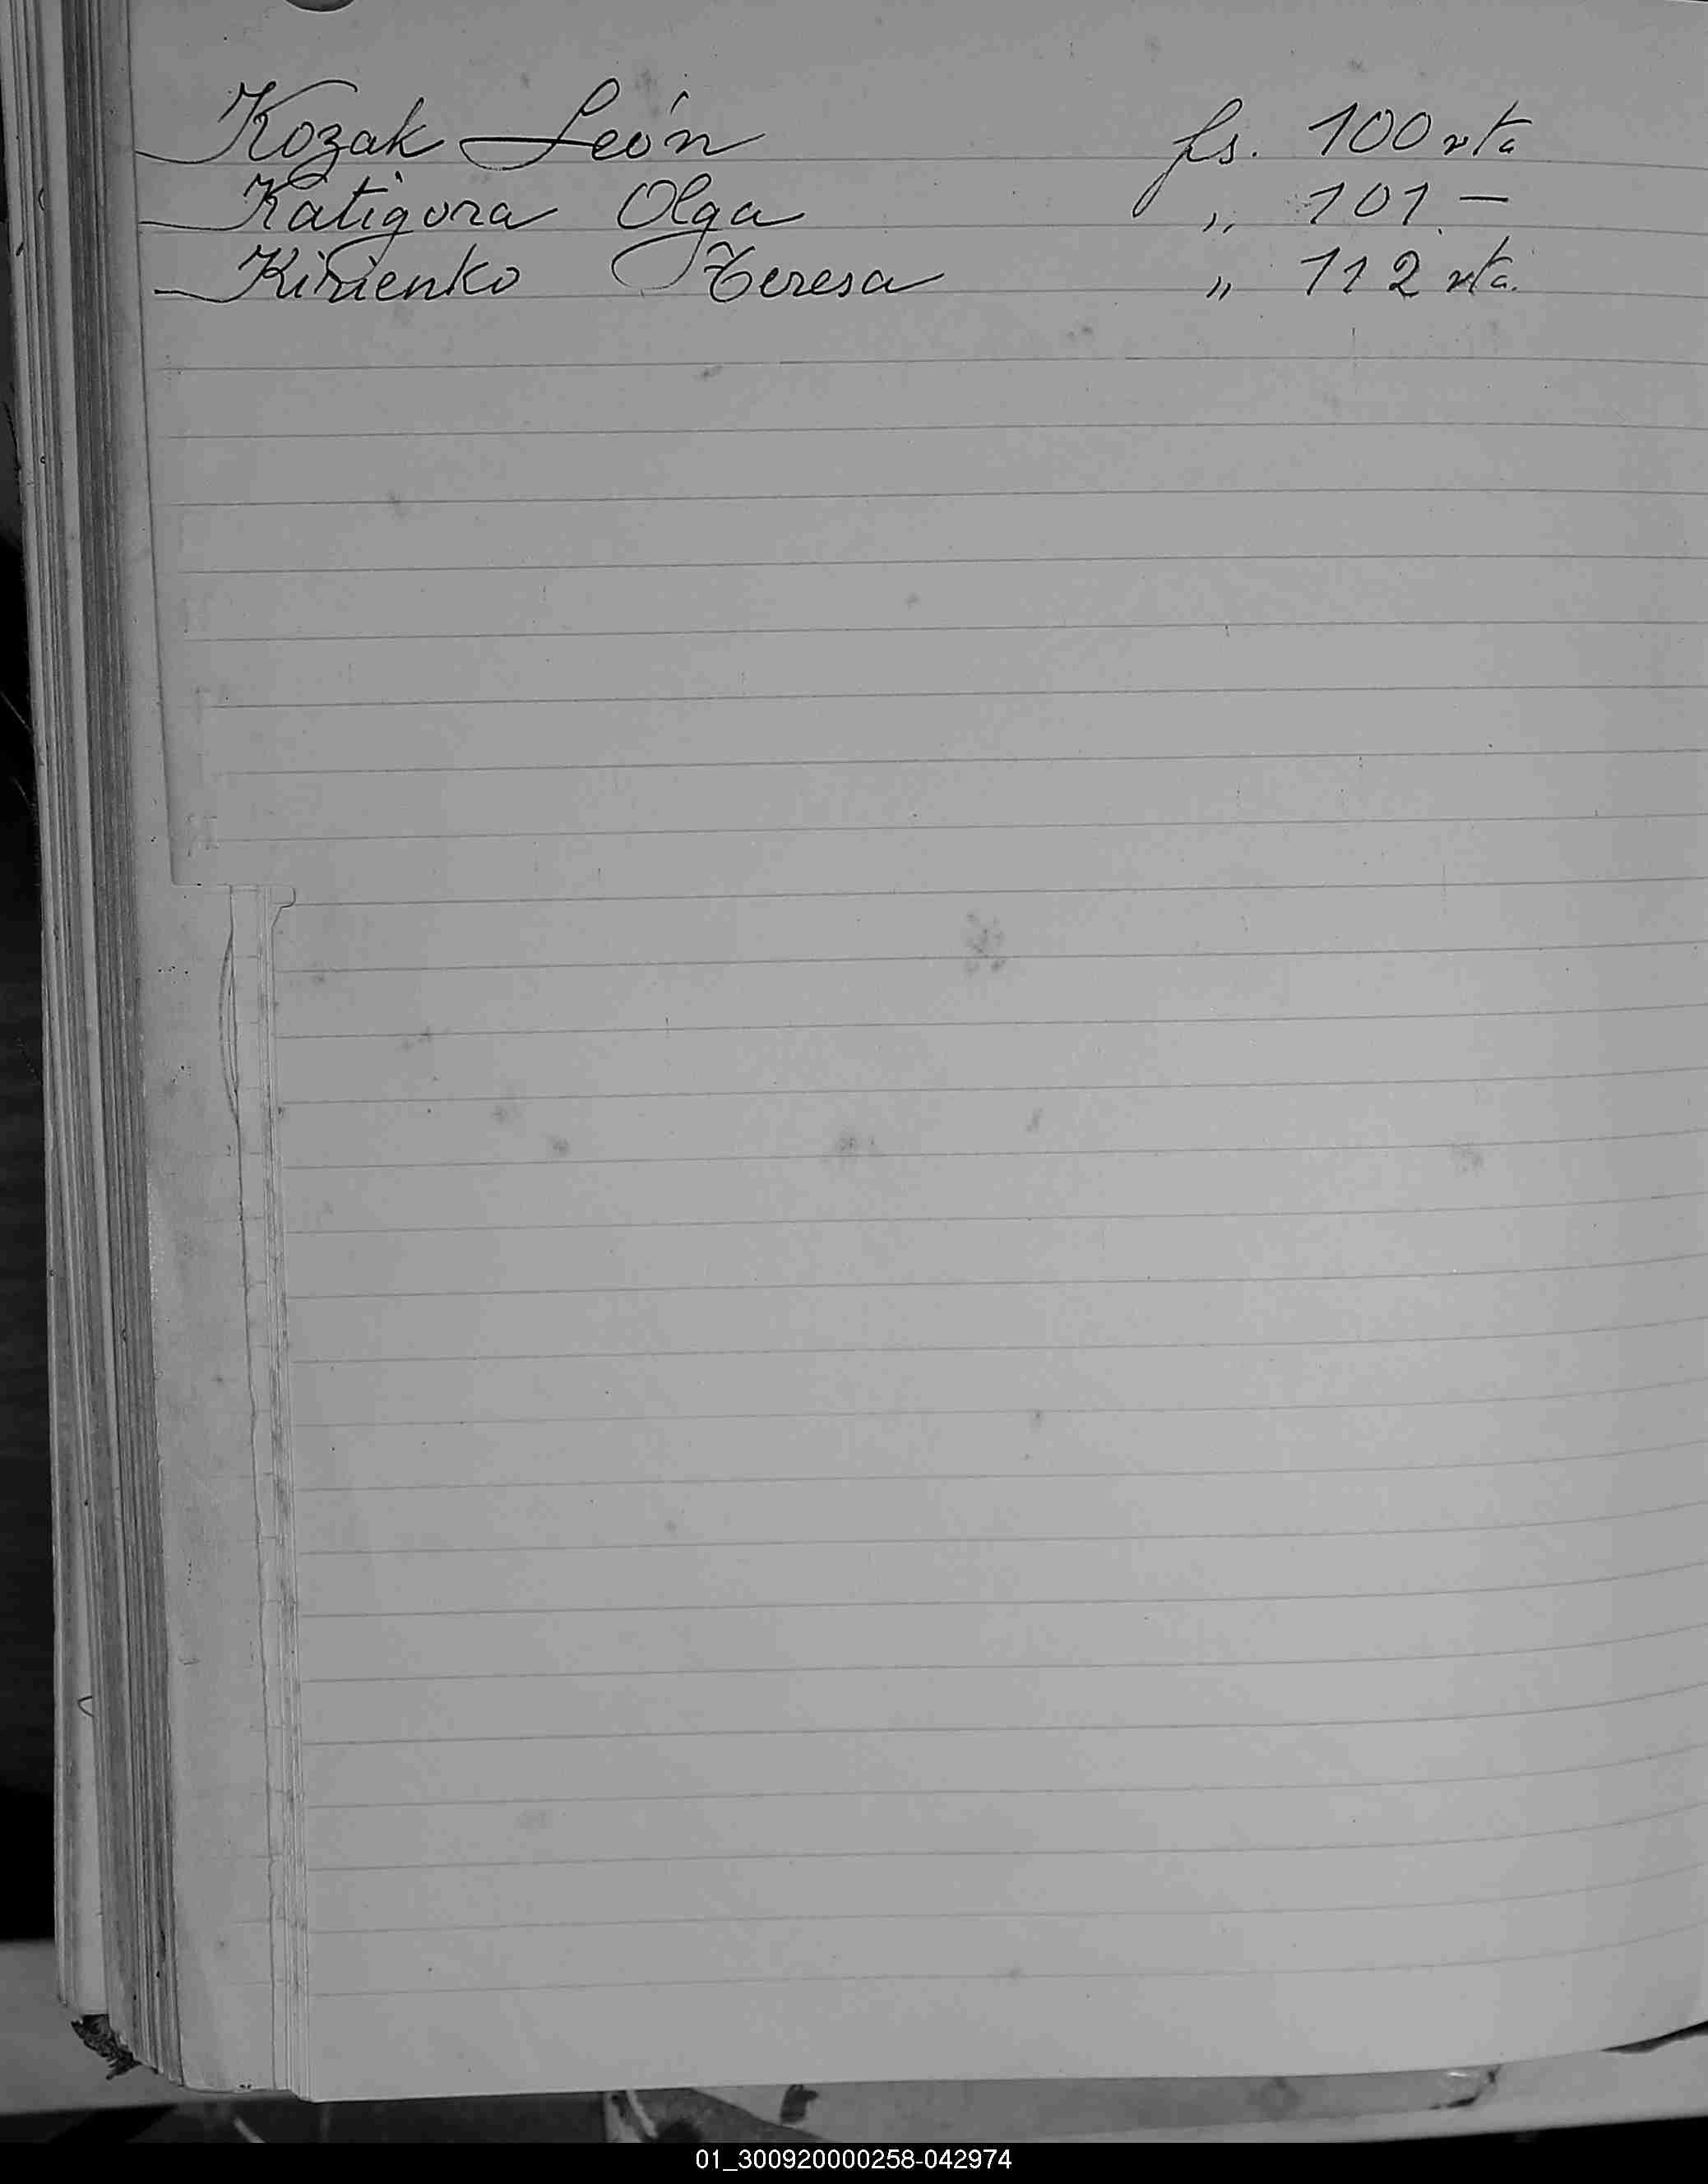 Kozak León fs. 100 vta
Katigora Olga " 101 —
Kirienko Teresa " 112 vta.
01_300920000258-042974